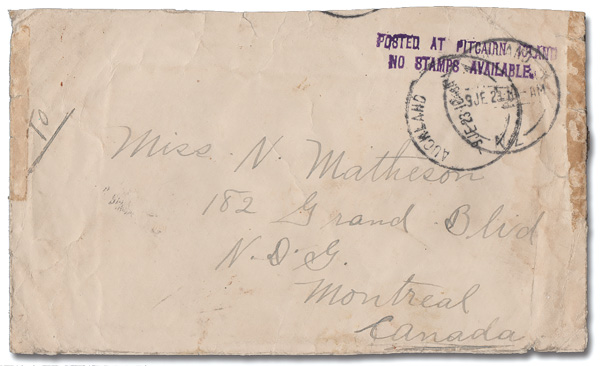 POSTED AT PITCAIRN ISLAND
NO STAMPS AVAILABLE.
AUCKLAND
N Z
TO
Miss. N. Matheson
182 Grand Blvd
N. D. G.
Montreal
Canada